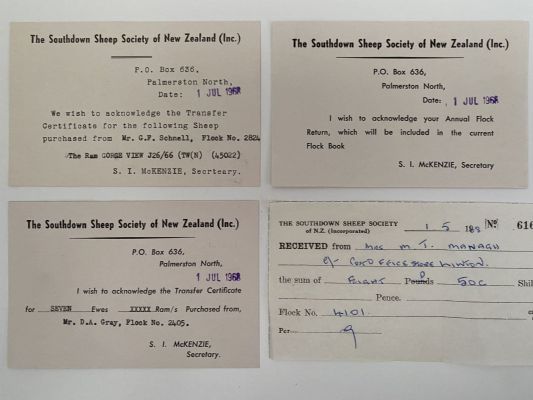 The Southdown Sheep Society of New Zealand (Inc.)
P.O. Box 636,
Palmerston North,
Date: 1 JUL 1968
We wish to acknowledge the Transfer
Certificate for the following Sheep
purchased from Mr. G.F. Schnell, Flock No. 2824
The Ram GORGE VIEW J26/66 (TW(N) (45022)
S. I. McKENZIE, Secrteary.
The Southdown Sheep Society of New Zealand (Inc.)
P.O. Box 636,
Palmerston North,
Date: 1 JUL 1968
I wish to acknowledge your Annual Flock
Return, which will be included in the current
Flock Book
S. I. McKENZIE, Secretary
The Southdown Sheep Society of New Zealand (Inc.)
P.O. Box 636,
Palmerston North,
1 JUL 1968
I wish to acknowledge the Transfer Certificate
for SEVEN Ewes XXXXX Ram/s Purchased from,
Mr. D.A. Gray, Flock No. 2405.
S. I. McKENZIE,
Secretary.
THE SOUTHDOWN SHEEP SOCIETY
of N.Z. (Incorporated)
1 5 No 616
RECEIVED from M. J. MANAGH
WINTON.
the sum of EIGHT Pounds 50C Shil
Pence.
Flock No. 4101
Per